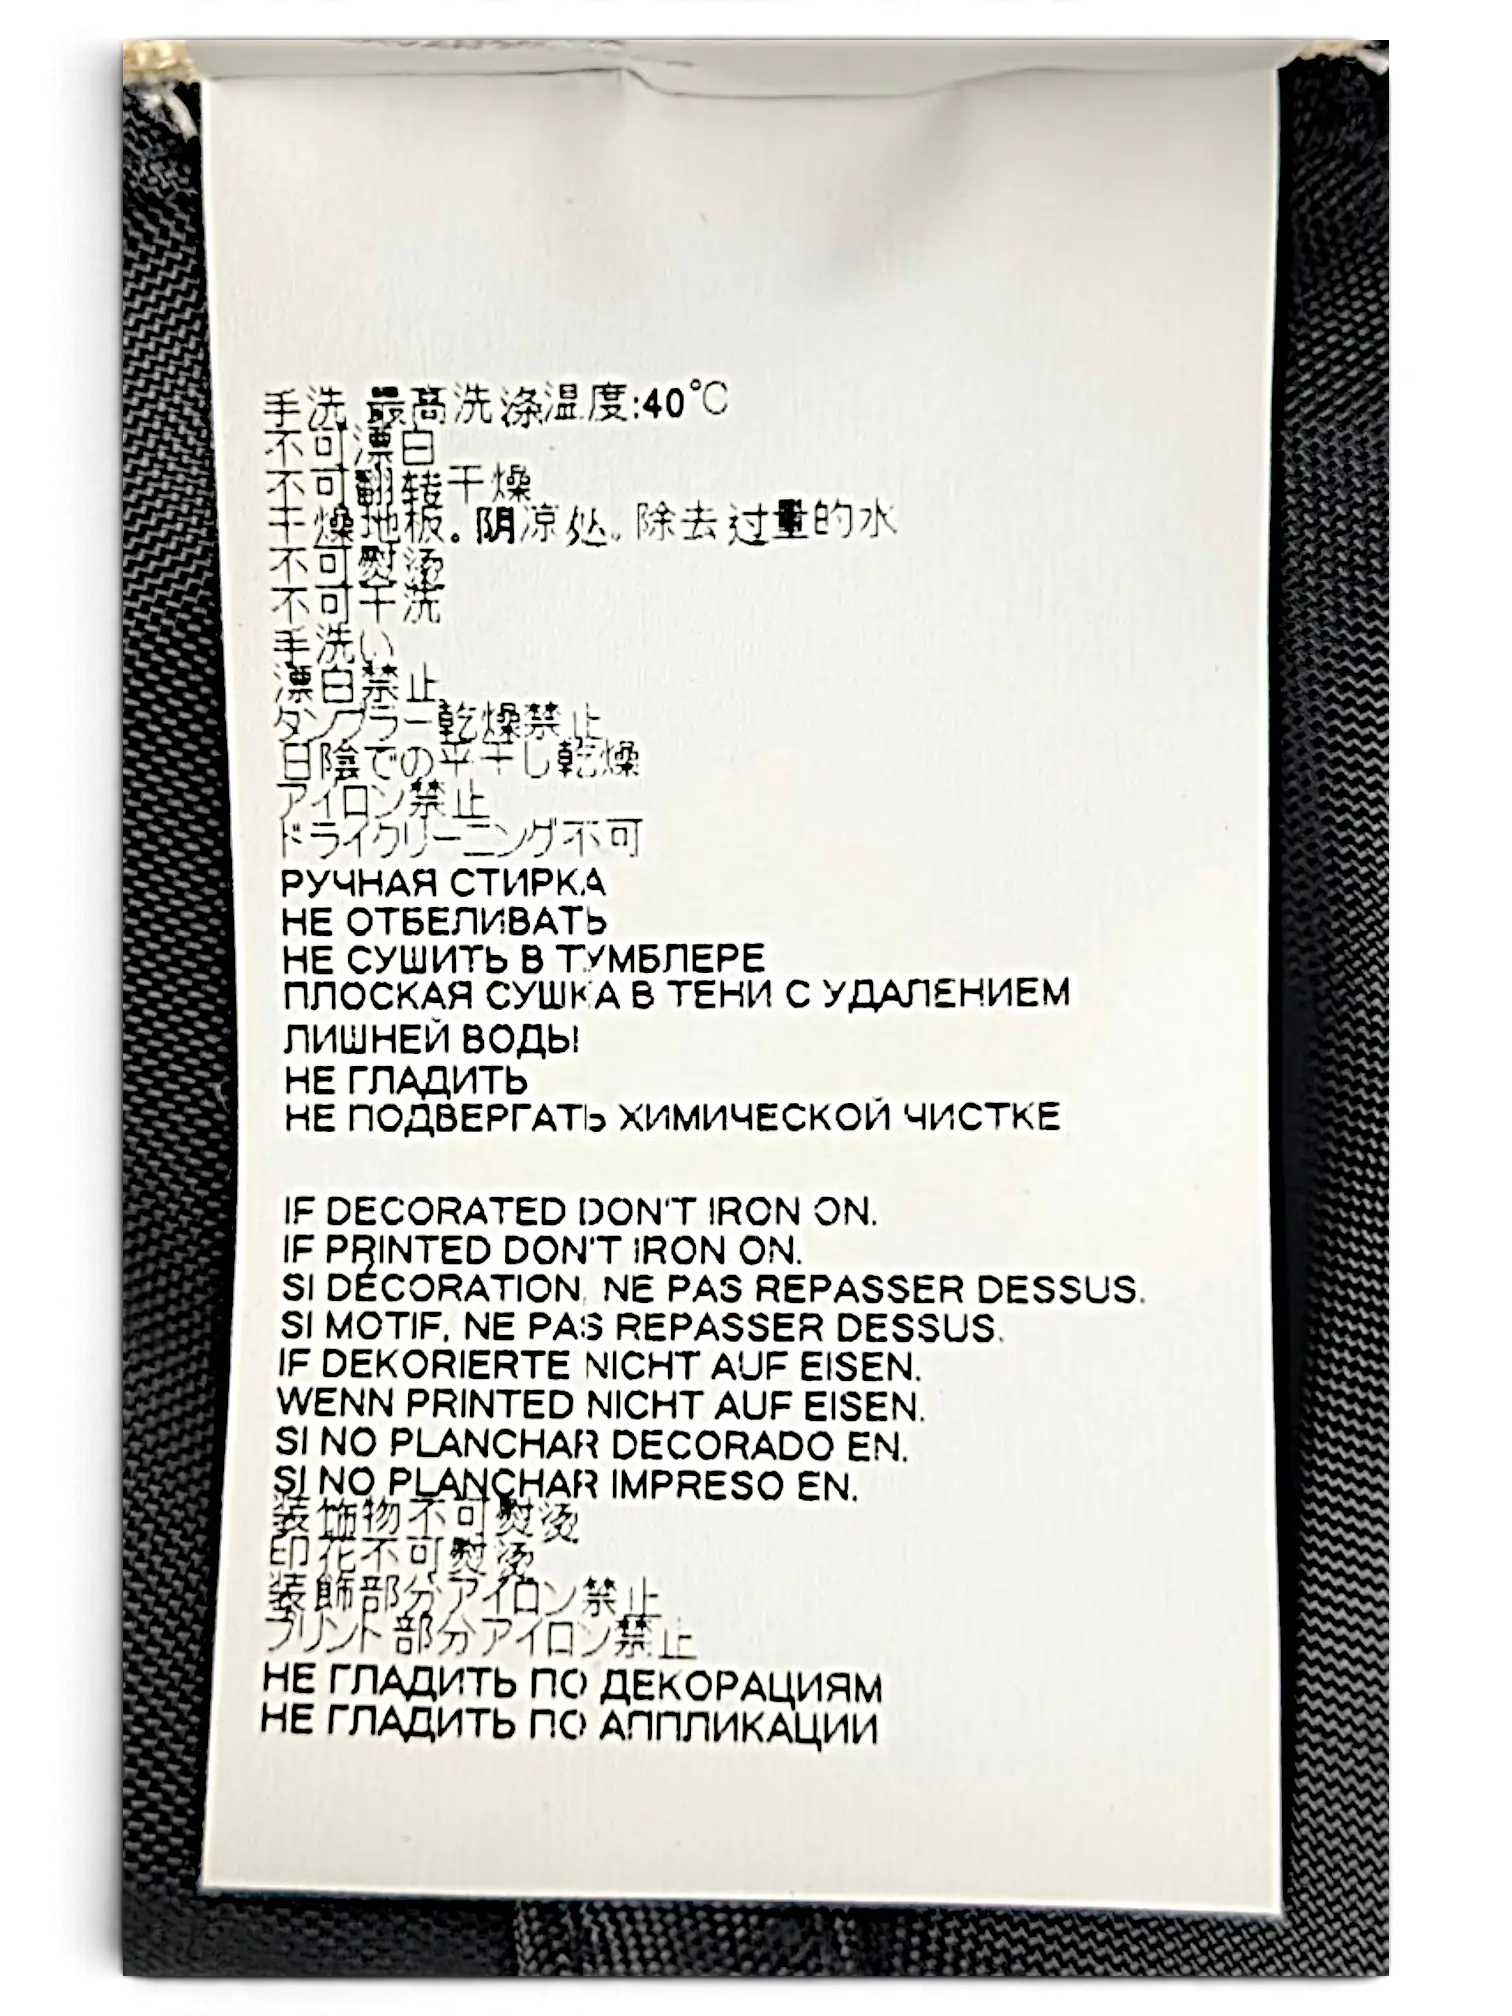 手洗 最高洗涤温度:40℃
不可漂白
不可翻转干燥
干燥地板。阴凉处。除去过量的水
不可熨烫
不可干洗
手洗い
漂白禁止
タンブラー乾燥禁止
日陰での平干し乾燥
アイロン禁止
ドライクリーニング不可
РУЧНАЯ СТИРКА
НЕ ОТБЕЛИВАТЬ
НЕ СУШИТЬ В ТУМБЛЕРЕ
ПЛОСКАЯ СУШКА В ТЕНИ С УДАЛЕНИЕМ
ЛИШНЕЙ ВОДЫ
НЕ ГЛАДИТЬ
НЕ ПОДВЕРГАТЬ ХИМИЧЕСКОЙ ЧИСТКЕ
IF DECORATED DON'T IRON ON.
IF PRINTED DON'T IRON ON.
SI DÉCORATION, NE PAS REPASSER DESSUS.
SI MOTIF, NE PAS REPASSER DESSUS.
IF DEKORIERTE NICHT AUF EISEN.
WENN PRINTED NICHT AUF EISEN.
SI NO PLANCHAR DECORADO EN.
SI NO PLANCHAR IMPRESO EN.
装饰物不可熨烫
印花不可熨烫
装飾部分アイロン禁止
プリント部分アイロン禁止
НЕ ГЛАДИТЬ ПО ДЕКОРАЦИЯМ
НЕ ГЛАДИТЬ ПО АППЛИКАЦИИ